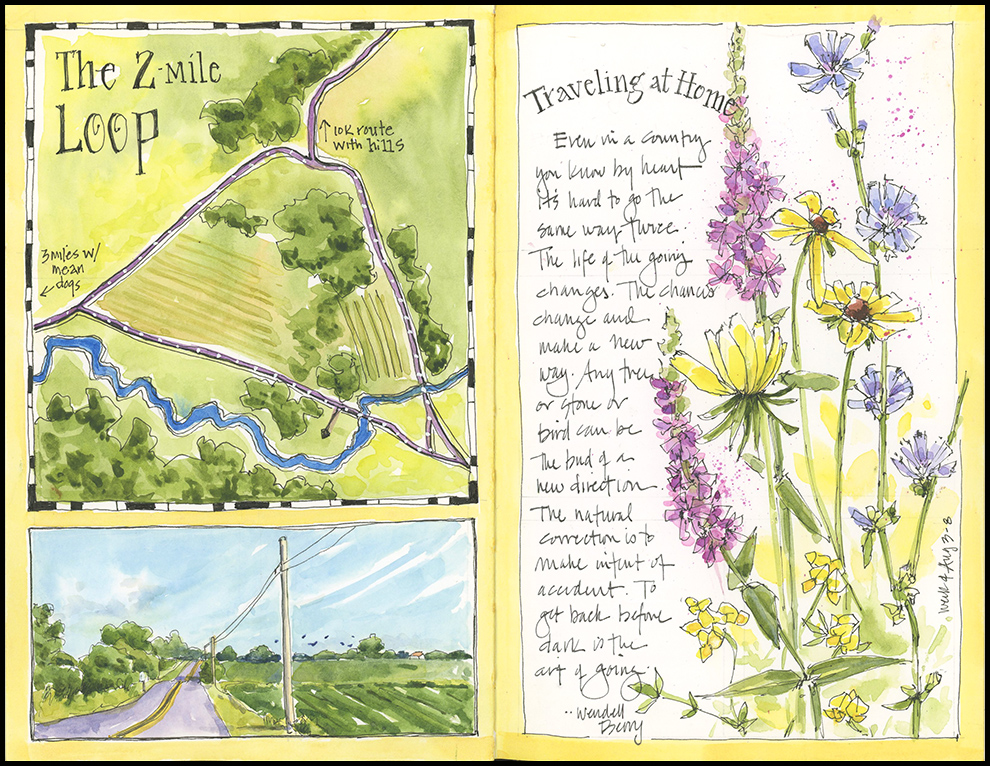 The 2-mile
Loop
↑ 10K route
with hills
3 miles w/
mean
dogs
←
Traveling at Home
Even in a country
you know by heart
it's hard to go the
same way twice.
The life of the going
changes. The chances
change and
make a new
way. Any tree
or stone or
bird can be
the bud of a
new direction.
The natural
correction is to
make intent of
accident. To
get back before
dark is the
art of going.
..Wendell
Berry
Week 4 Aug 3-8